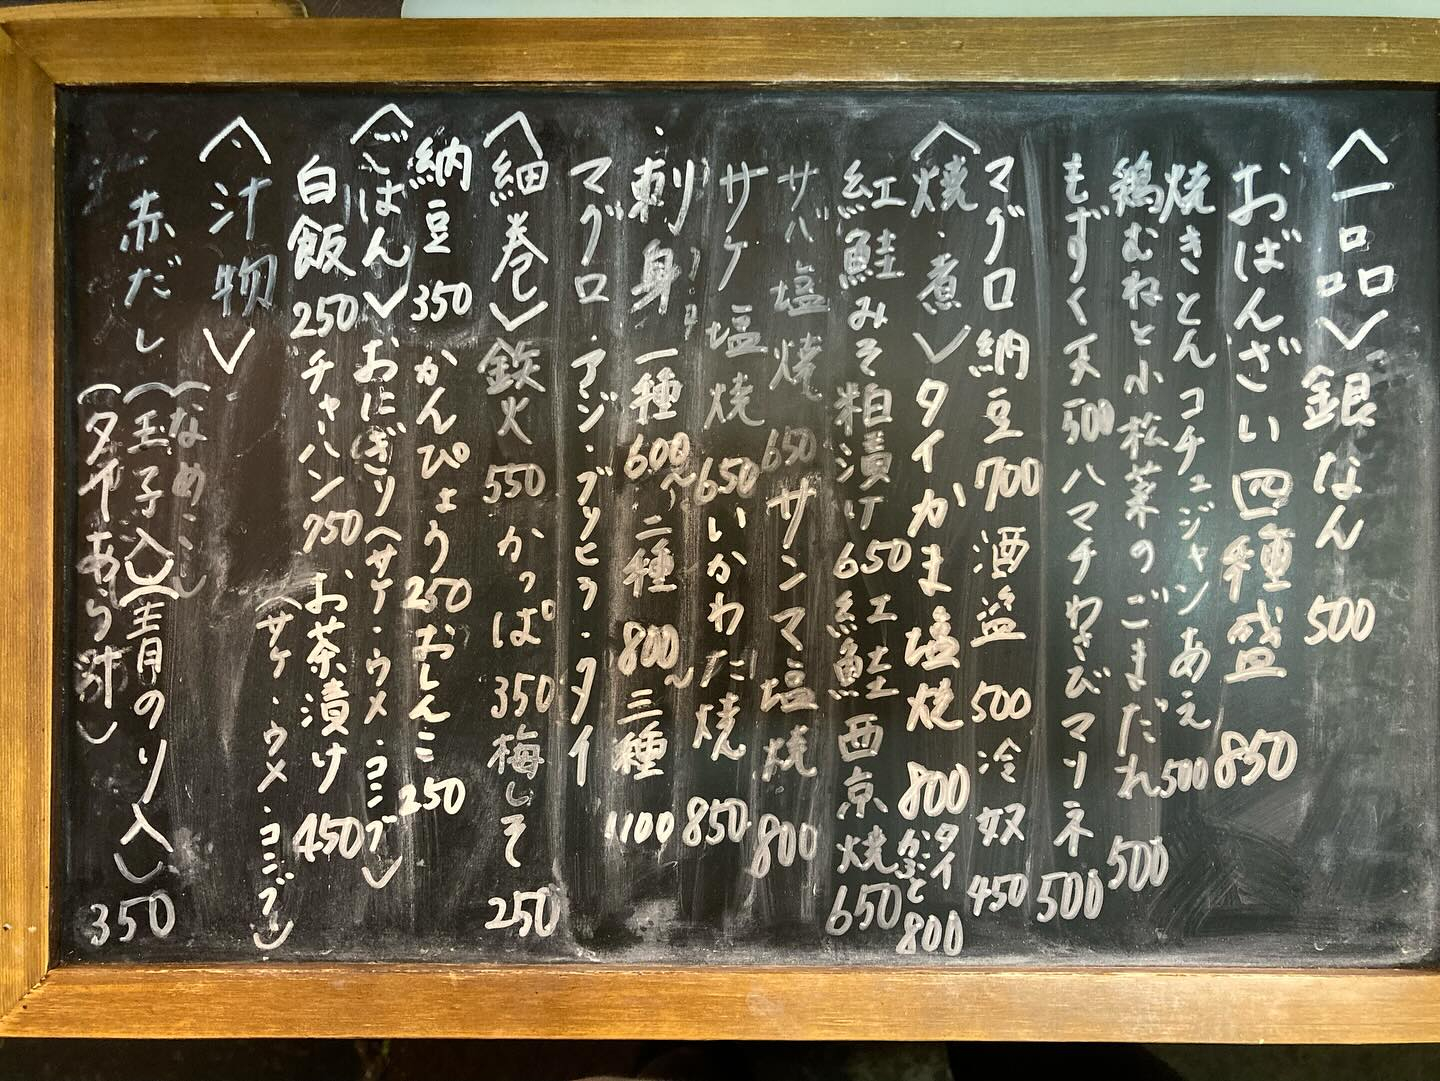 〈一品〉銀なん 500
おばんざい四種盛 850
焼きとんコチュジャンあえ 500
鶏むねと小松菜のごまだれ 500
もずく天 500 ハマチわさびマリネ 500
マグロ納豆 700 酒盗 500 冷奴 450
〈焼・煮〉タイかま塩焼 800 タイかぶと 800
紅鮭みそ粕漬け 650 紅鮭西京焼 650
サバ塩焼 650 サンマ塩焼 800
サケ塩焼 650 いかわた焼 850
刺身 一種 600〜 二種 800〜 三種 1100
マグロ・アジ・ブリヒラ・タイ
〈細巻〉鉄火 550 かっぱ 350 梅しそ 250
納豆 350 かんぴょう 250 おしんこ 250
〈ごはん〉おにぎり〈サケ・ウメ・コンブ〉
白飯 250 チャーハン 750 お茶漬け 450
(サケ・ウメ・コンブ)
〈汁物〉
赤だし (なめこ)
(玉子入)(青のり入) 350
(タイあら汁)